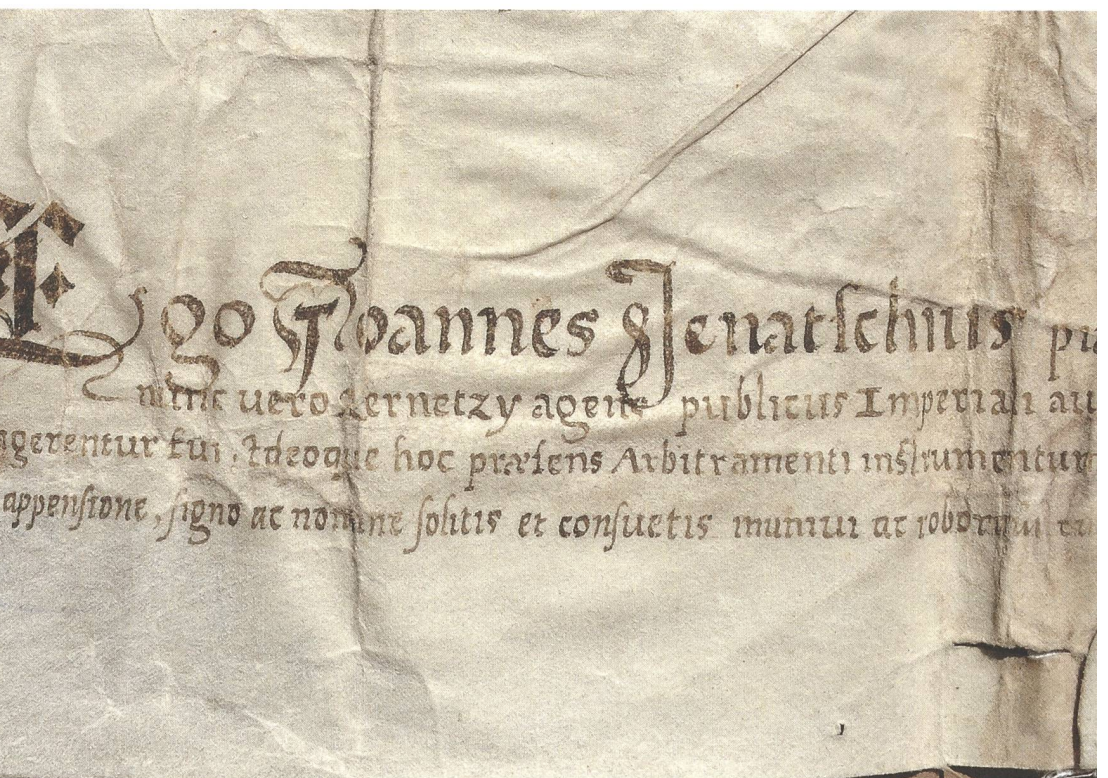 Ego Joannes Jenatschius
nunc uero Zernetzy agens publicus Imperiali au
agerentur fui. Ideoque hoc præsens Arbitramenti instrumentum
appensione, signo ac nomine solitis et consuetis muniui ac roboraui